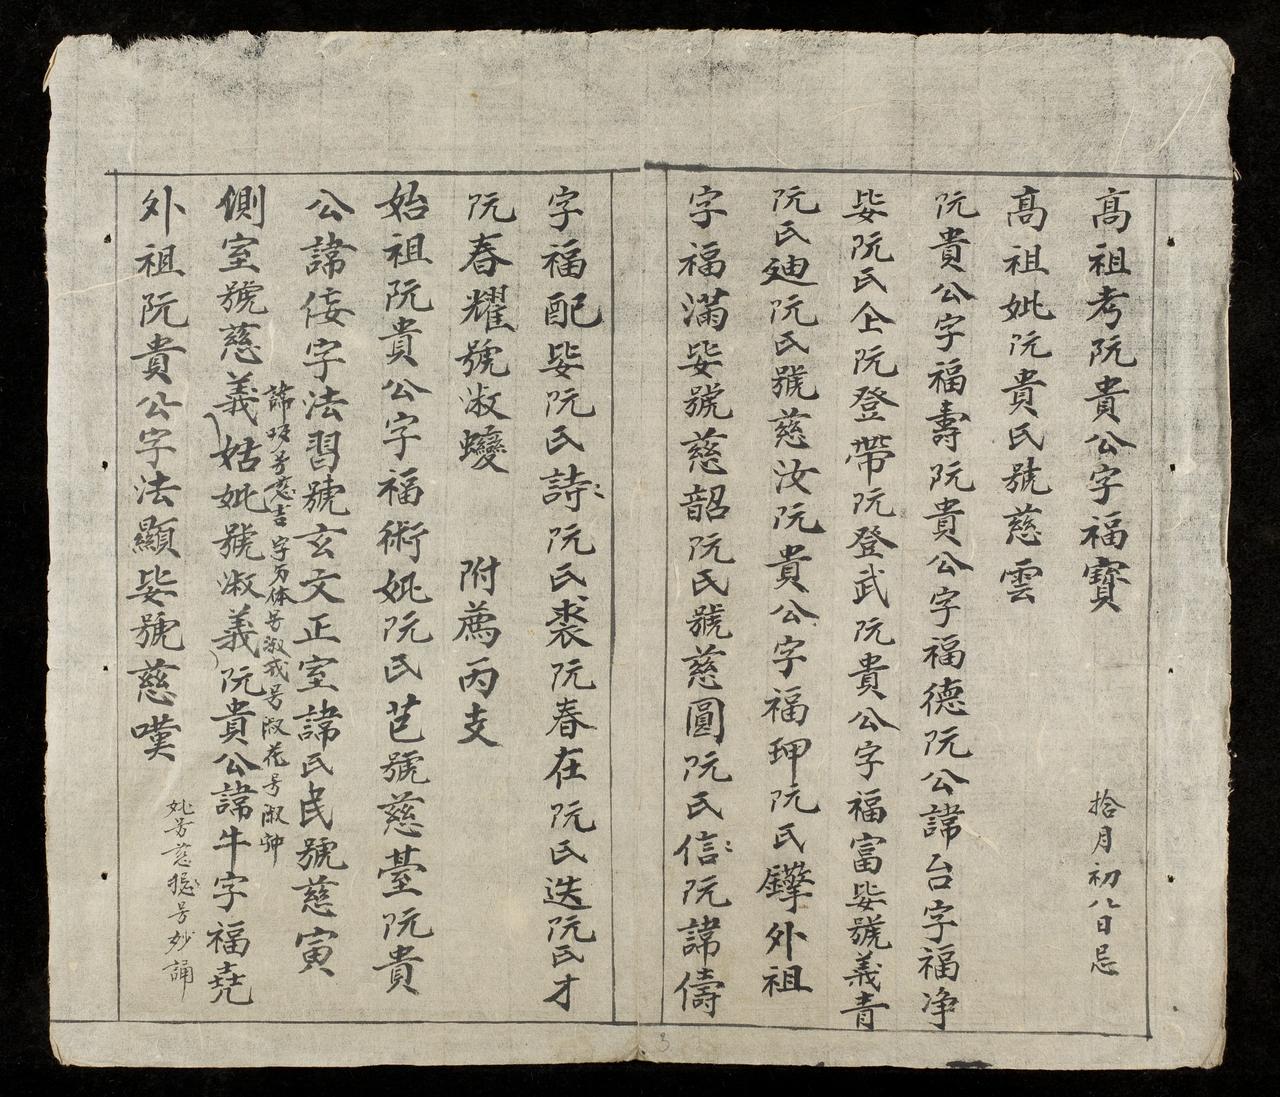 高祖考阮貴公字福寶 拾月初八日忌
高祖妣阮貴氏號慈雲
阮貴公字福壽阮貴公字福德阮公諱台字福净
妣阮氏仝阮登帶阮登武阮貴公字福富妣號義青
阮氏廸阮氏號慈汝阮貴公字福玾阮氏外祖
字福滿妣號慈韶阮氏號慈圓阮氏信阮諱儔
字福配妣阮氏詩阮氏裘阮春在阮氏迭阮氏才
阮春耀號淑 附薦丙支
始祖阮貴公字福術妣阮氏芑號慈臺阮貴
公諱佞字法習號玄文正室諱氏民號慈寅
諱号慈吉字历体号淑戎号淑花号淑
側室號慈義姑妣號淑義阮貴公諱牛字福堯
外祖阮貴公字法顯妣號慈嘆
妣号慈号妙誦
3